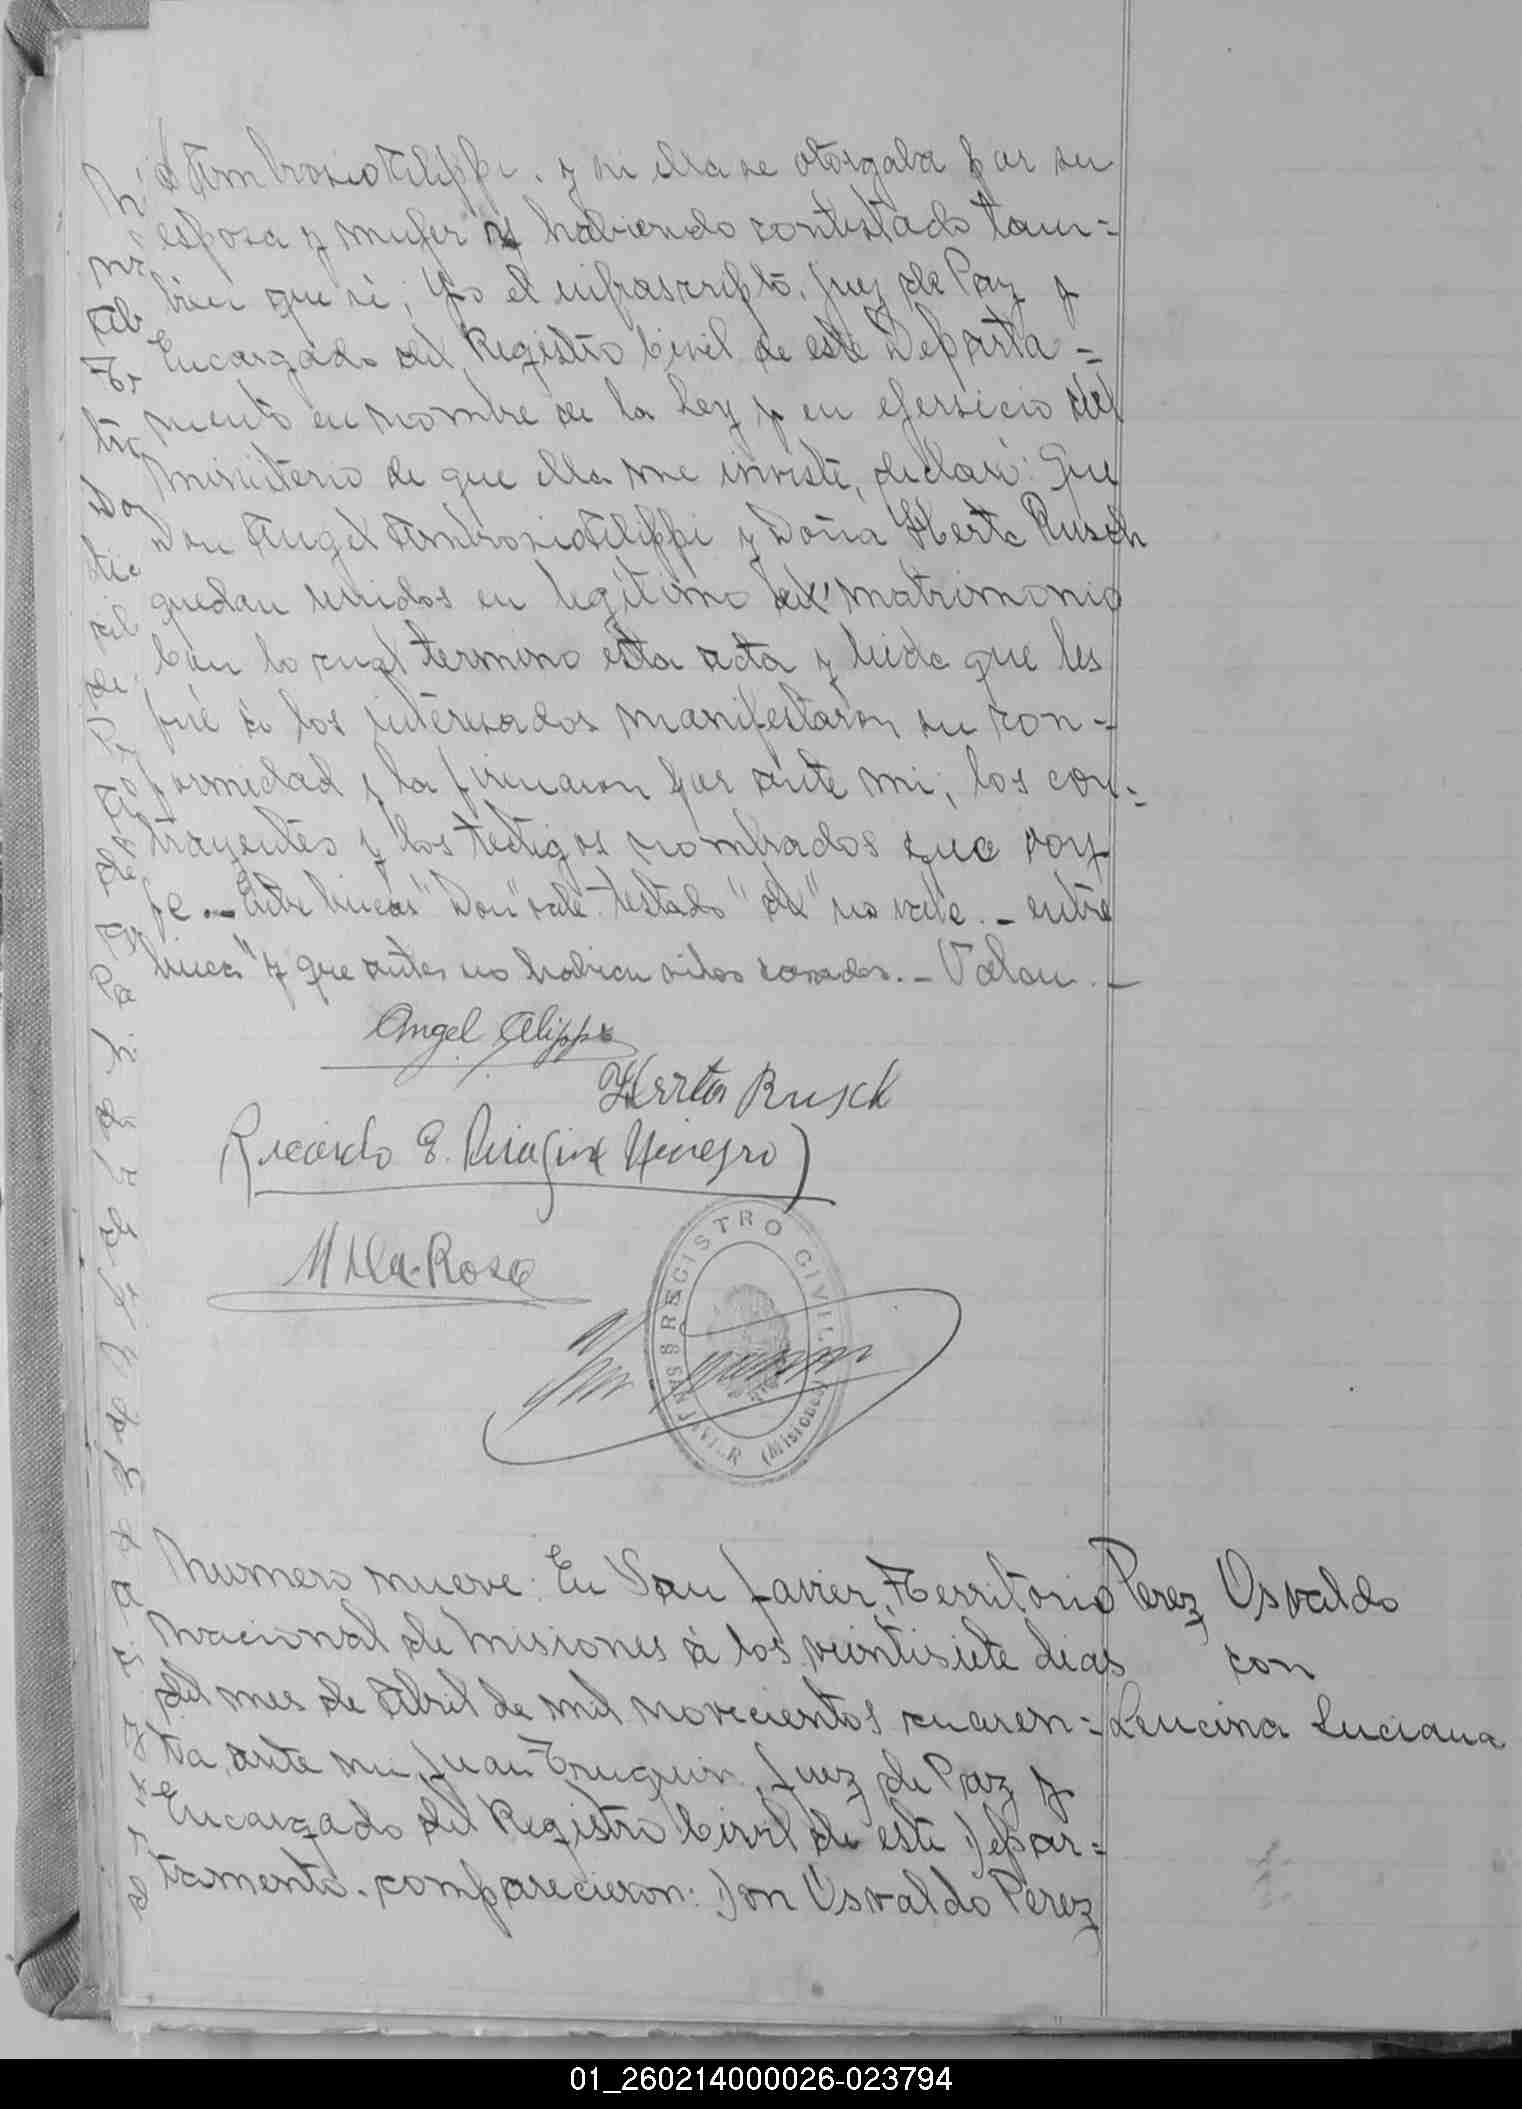 Ambrosio Filippi. y si ella se otorgaba por su
esposa y mujer y habiendo contestado tam=
bien que si; Yo el infrascripto, Juez de Paz y
Encargado del Registro Civil de este Departa=
mento en nombre de la Ley y en ejersicio del
ministerio de que ella me inviste, declaró: Que
Don Angel Ambrosio Filippi y Doña Herta Rusch
quedan unidos en legitimo del matrimonio
Con lo cual termino esta acta y leida que les
fué á los interesados manifestaron su con=
formidad y la firmaron por ante mi; los con=
trayentes y los testigos nombrados que doy
fe. — Entre lineas "Don" vale. testado "del" no vale. — entre
lineas "y que antes no habian sidos casados. — Valen. —
Angel Filippi
Herta Rusch
Ricardo E.
M de la Rosa
REGISTRO CIVIL
SAN JAVIER (Misiones)
Numero nueve: En San Javier, Territorio
Nacional de Misiones á los veintisiete dias
del mes de Abril de mil novecientos cuaren=
ta, ante mi, Juan Truquin, Juez de Paz y
Encargado del Registro Civil de este Depar=
tamento. comparecieron: Don Osvaldo Perez
Perez Osvaldo
con
Leucina Luciana
01_260214000026-023794